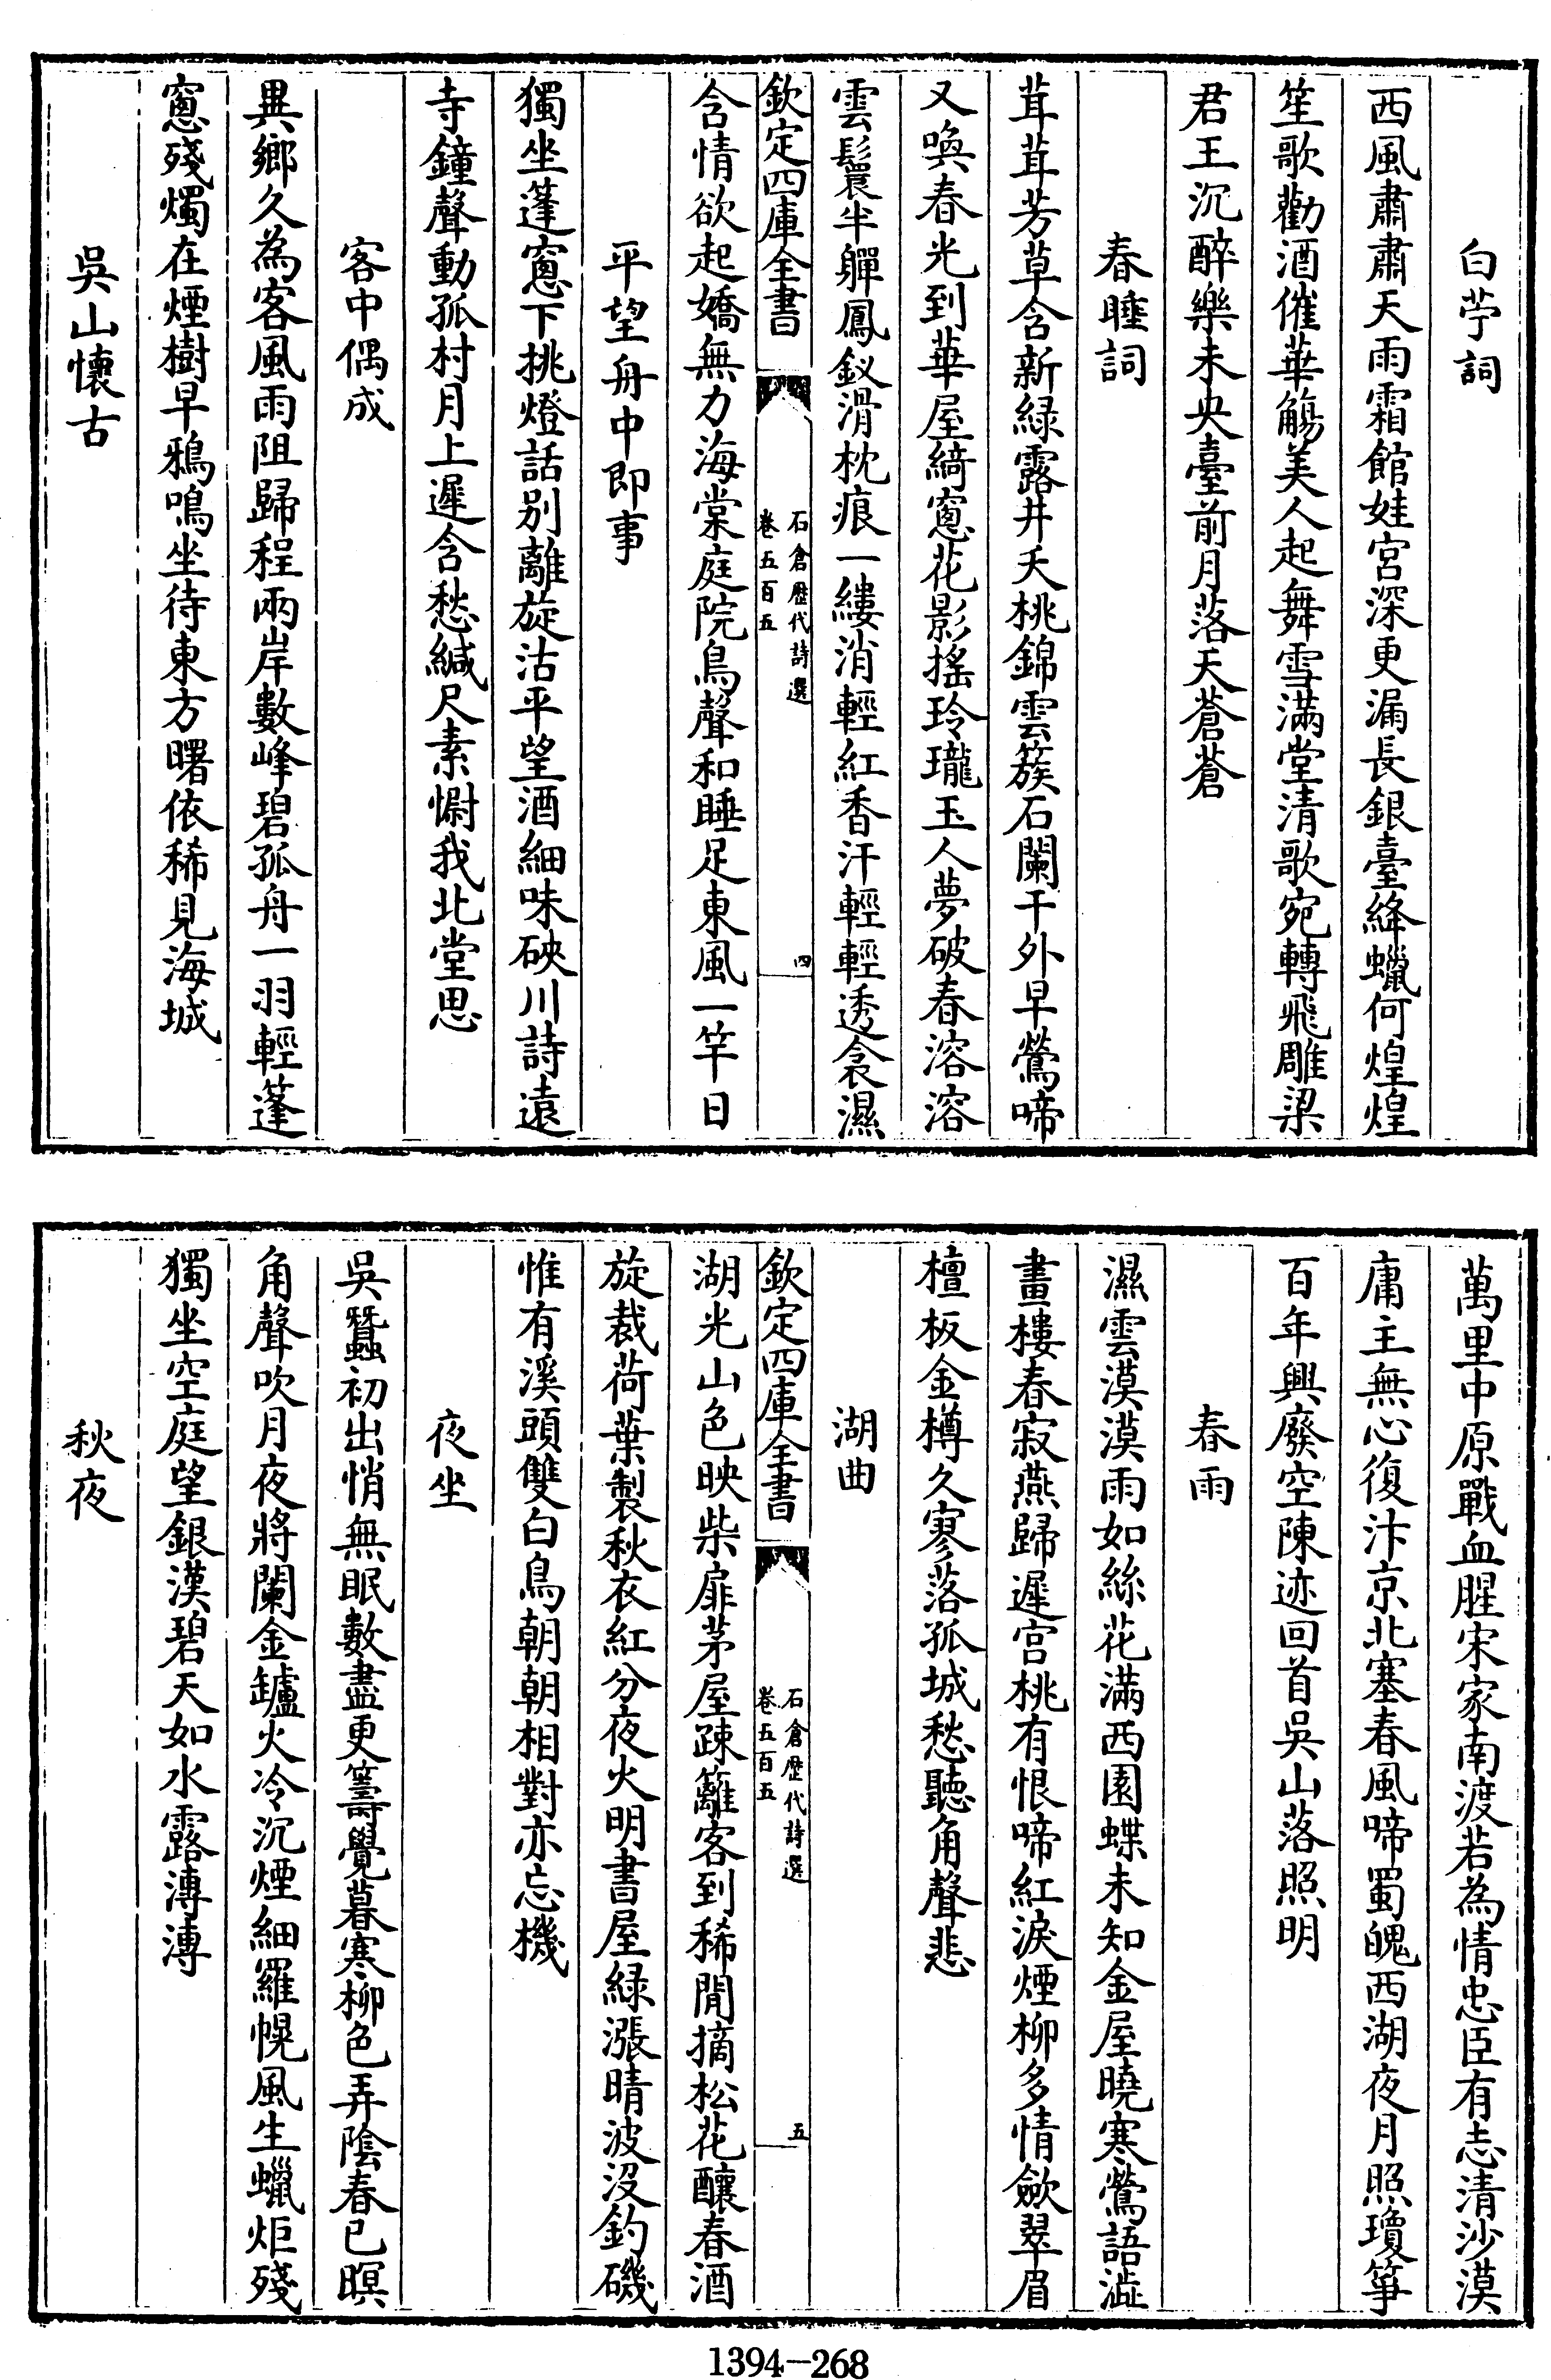 白苧詞
西風肅肅天雨霜館娃宮深更漏長銀臺絳蠟何煌煌
笙歌勸酒催華觴美人起舞雪滿堂清歌宛轉飛雕梁
君王沉醉樂未央臺前月落天蒼蒼
春睡詞
茸茸芳草含新緑露井夭桃錦雲簇石闌干外早鶯啼
又喚春光到華屋綺窻花影搖玲瓏玉人夢破春溶溶
雲鬟半軃鳳釵滑枕痕一縷消輕紅香汗輕輕透衾濕
欽定四庫全書
石倉歷代詩選
卷五百五
四
含情欲起嬌無力海棠庭院鳥聲和睡足東風一竿日
平望舟中即事
獨坐蓬窻下挑燈話别離旋沽平望酒細味硤川詩遠
寺鐘聲動孤村月上遲含愁緘尺素慰我北堂思
客中偶成
異鄉久為客風雨阻歸程兩岸數峰碧孤舟一羽輕蓬
窻殘燭在煙樹早鴉鳴坐待東方曙依稀見海城
吳山懷古
萬里中原戰血腥宋家南渡若為情忠臣有志清沙漠
庸主無心復汴京北塞春風啼蜀魄西湖夜月照瓊箏
百年興廢空陳迹回首吳山落照明
春雨
濕雲漠漠雨如絲花滿西園蝶未知金屋曉寒鶯語澁
畫樓春寂燕歸遲宫桃有恨啼紅淚煙柳多情歛翠眉
檀板金樽久寥落孤城愁聽角聲悲
湖曲
欽定四庫全書
石倉歷代詩選
卷五百五
五
湖光山色映柴扉茅屋疎籬客到稀閒摘松花釀春酒
旋裁荷葉製秋衣紅分夜火明書屋緑漲晴波没釣磯
惟有溪頭雙白鳥朝朝相對亦忘機
夜坐
吳蠶初出悄無眠數盡更籌覺暮寒柳色弄陰春已暝
角聲吹月夜將闌金鑪火冷沉煙細羅幌風生蠟炬殘
獨坐空庭望銀漢碧天如水露漙漙
秋夜
1394—268